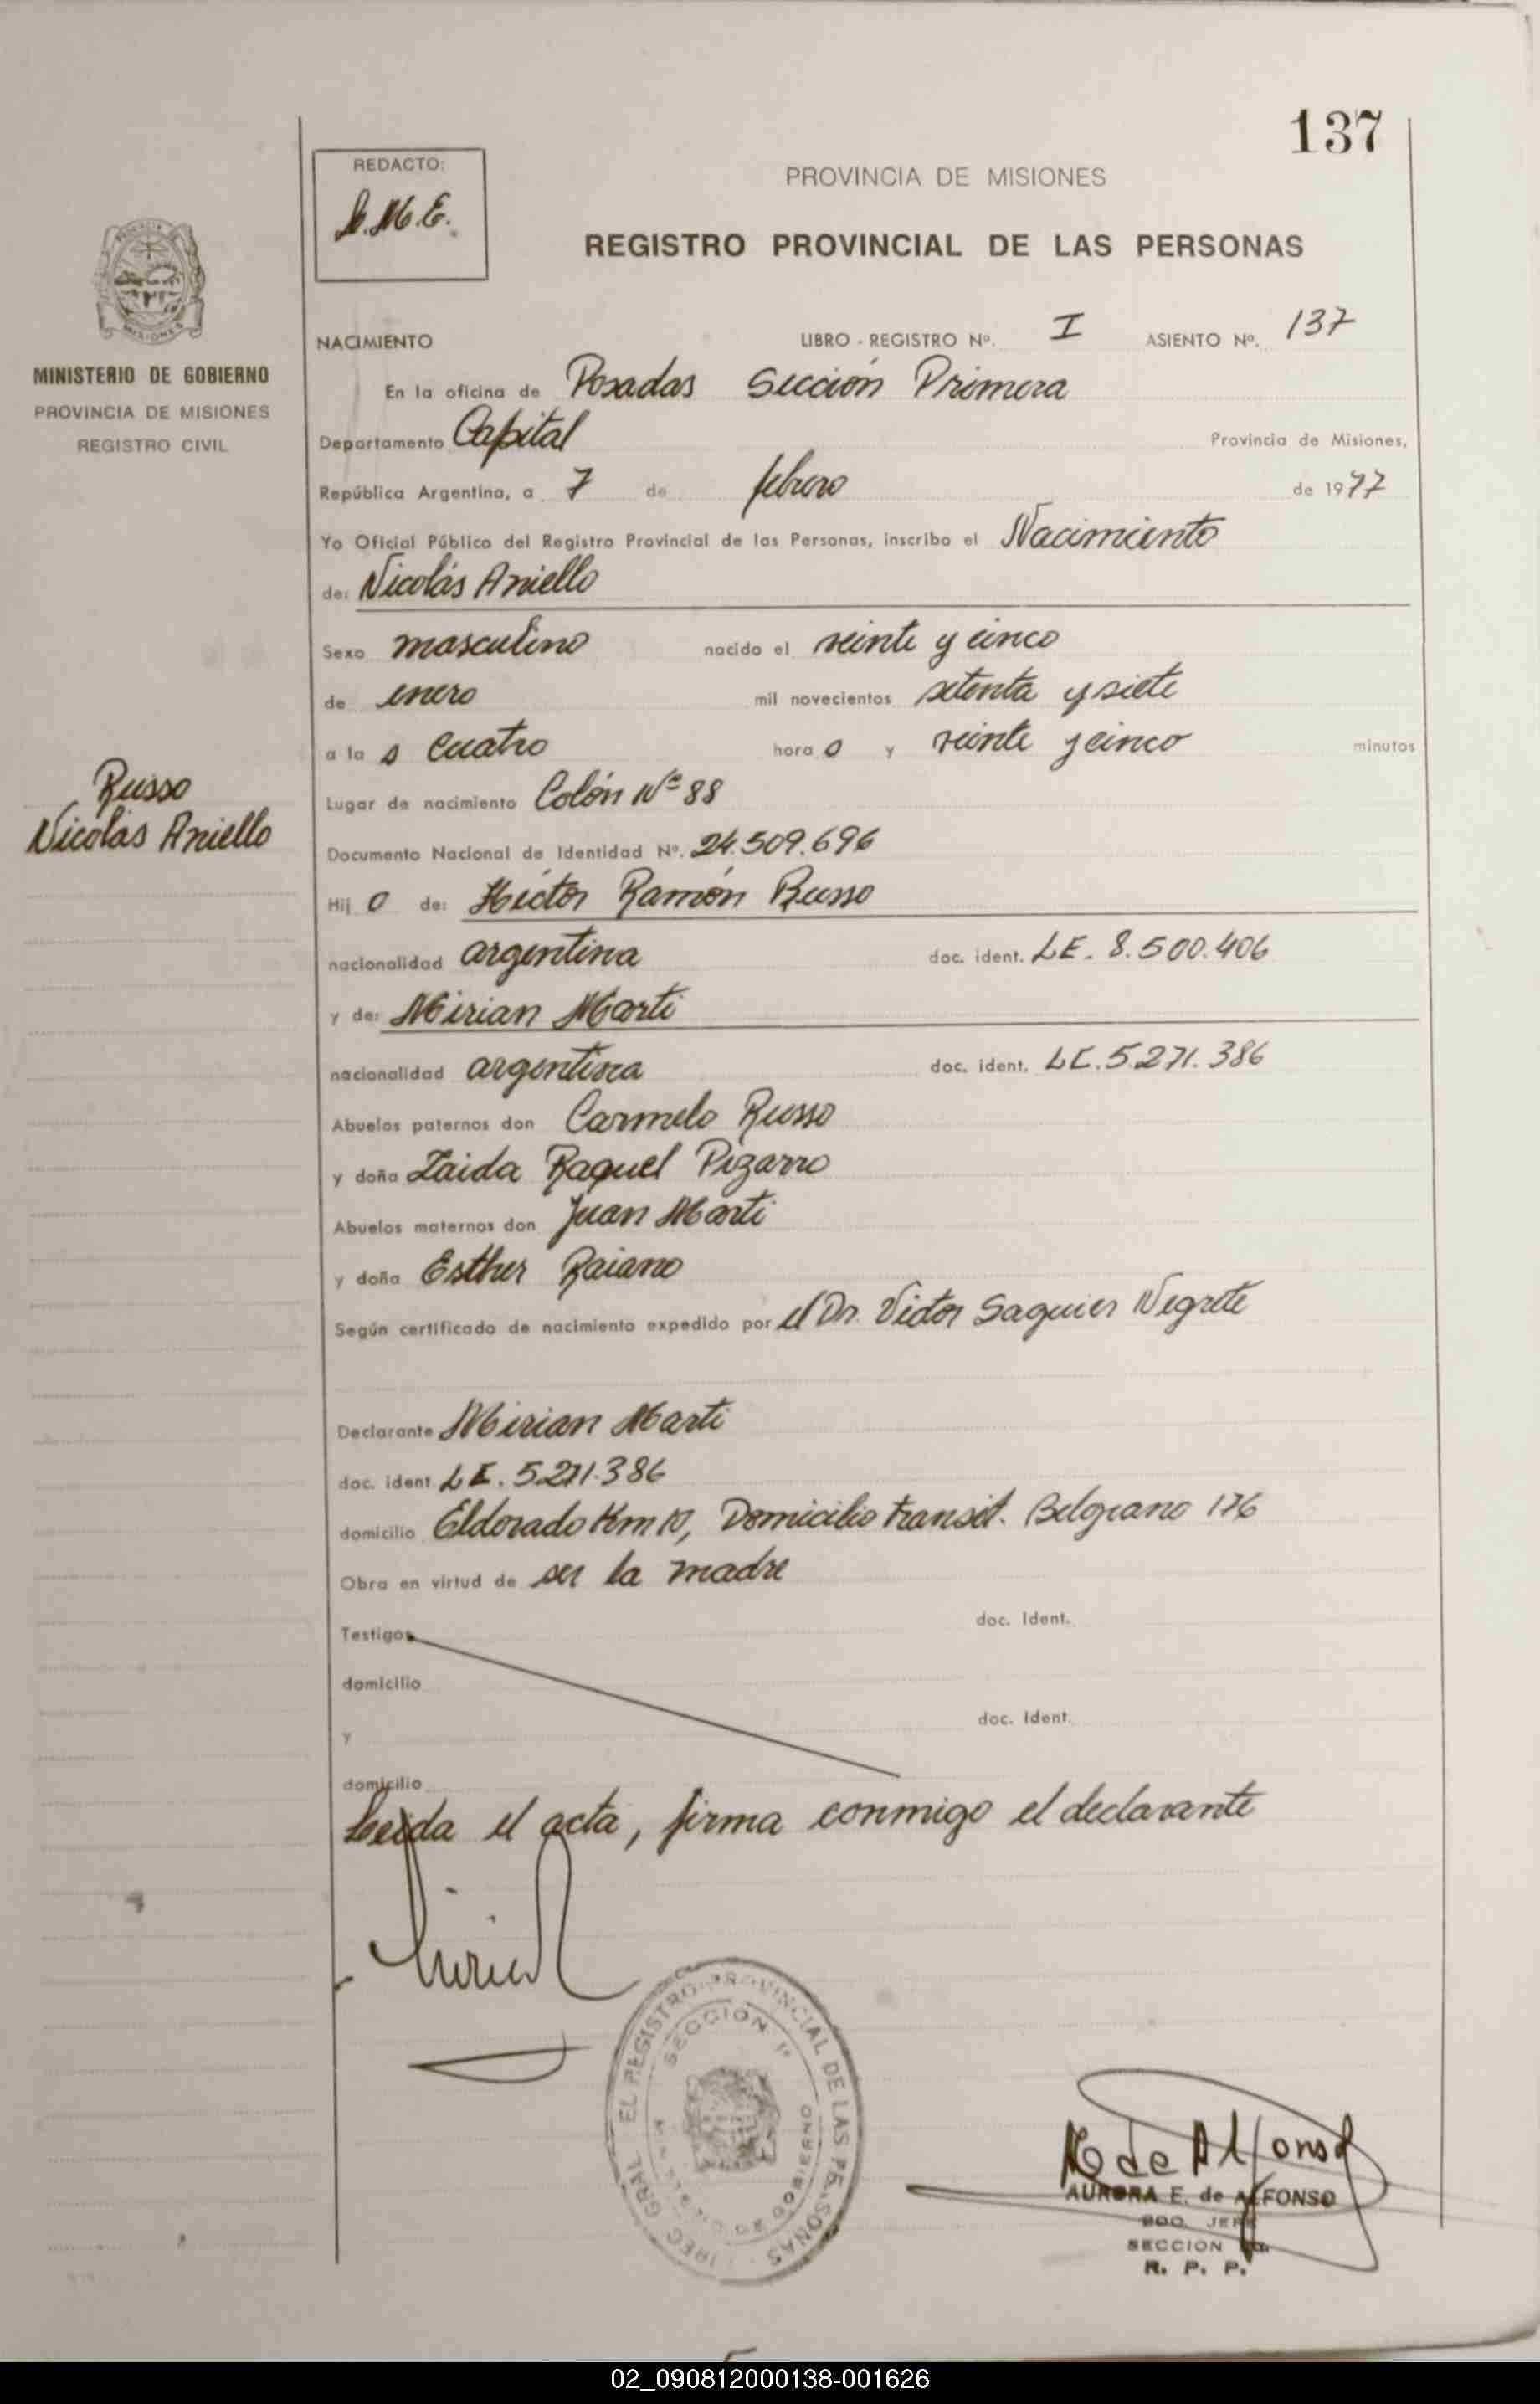 137
REDACTO:
PROVINCIA DE MISIONES
REGISTRO PROVINCIAL DE LAS PERSONAS
MINISTERIO DE GOBIERNO
PROVINCIA DE MISIONES
REGISTRO CIVIL
Russo
Nicolás Aniello
NACIMIENTO LIBRO - REGISTRO Nº. I ASIENTO Nº. 137
En la oficina de Posadas Sección Primera
Departamento Capital Provincia de Misiones,
República Argentina, a 7 de febrero de 1977
Yo Oficial Público del Registro Provincial de las Personas, inscribo el Nacimiento
de: Nicolás Aniello
Sexo masculino nacido el veinte y cinco
de enero mil novecientos setenta y siete
a la s cuatro hora s y veinte y cinco minutos
Lugar de nacimiento Colón Nº 88
Documento Nacional de Identidad Nº. 24.509.696
Hij o de: Héctor Ramón Russo
nacionalidad argentina doc. ident. LE. 8.500.406
y de: Mirian Marti
nacionalidad argentina doc. ident. LC. 5.271.386
Abuelos paternos don Carmelo Russo
y doña Zaida Raquel Pizarro
Abuelos maternos don Juan Marti
y doña Esther Raiano
Según certificado de nacimiento expedido por el Dr. Victor Saguier Negrete
Declarante Mirian Marti
doc. ident. 5.271.386
domicilio Eldorado Km 10, Domicilio transit. Belgrano 176
Obra en virtud de ser la madre
Testigos doc. Ident.
domicilio
y doc. Ident.
domicilio
Leida el acta, firma conmigo el declarante
REGISTRO PROVINCIAL DE LAS PERSONAS
SECCION 1ª
A de Alfonso
AURORA E. de ALFONSO
SECCION
R. P. P.
02_090812000138-001626